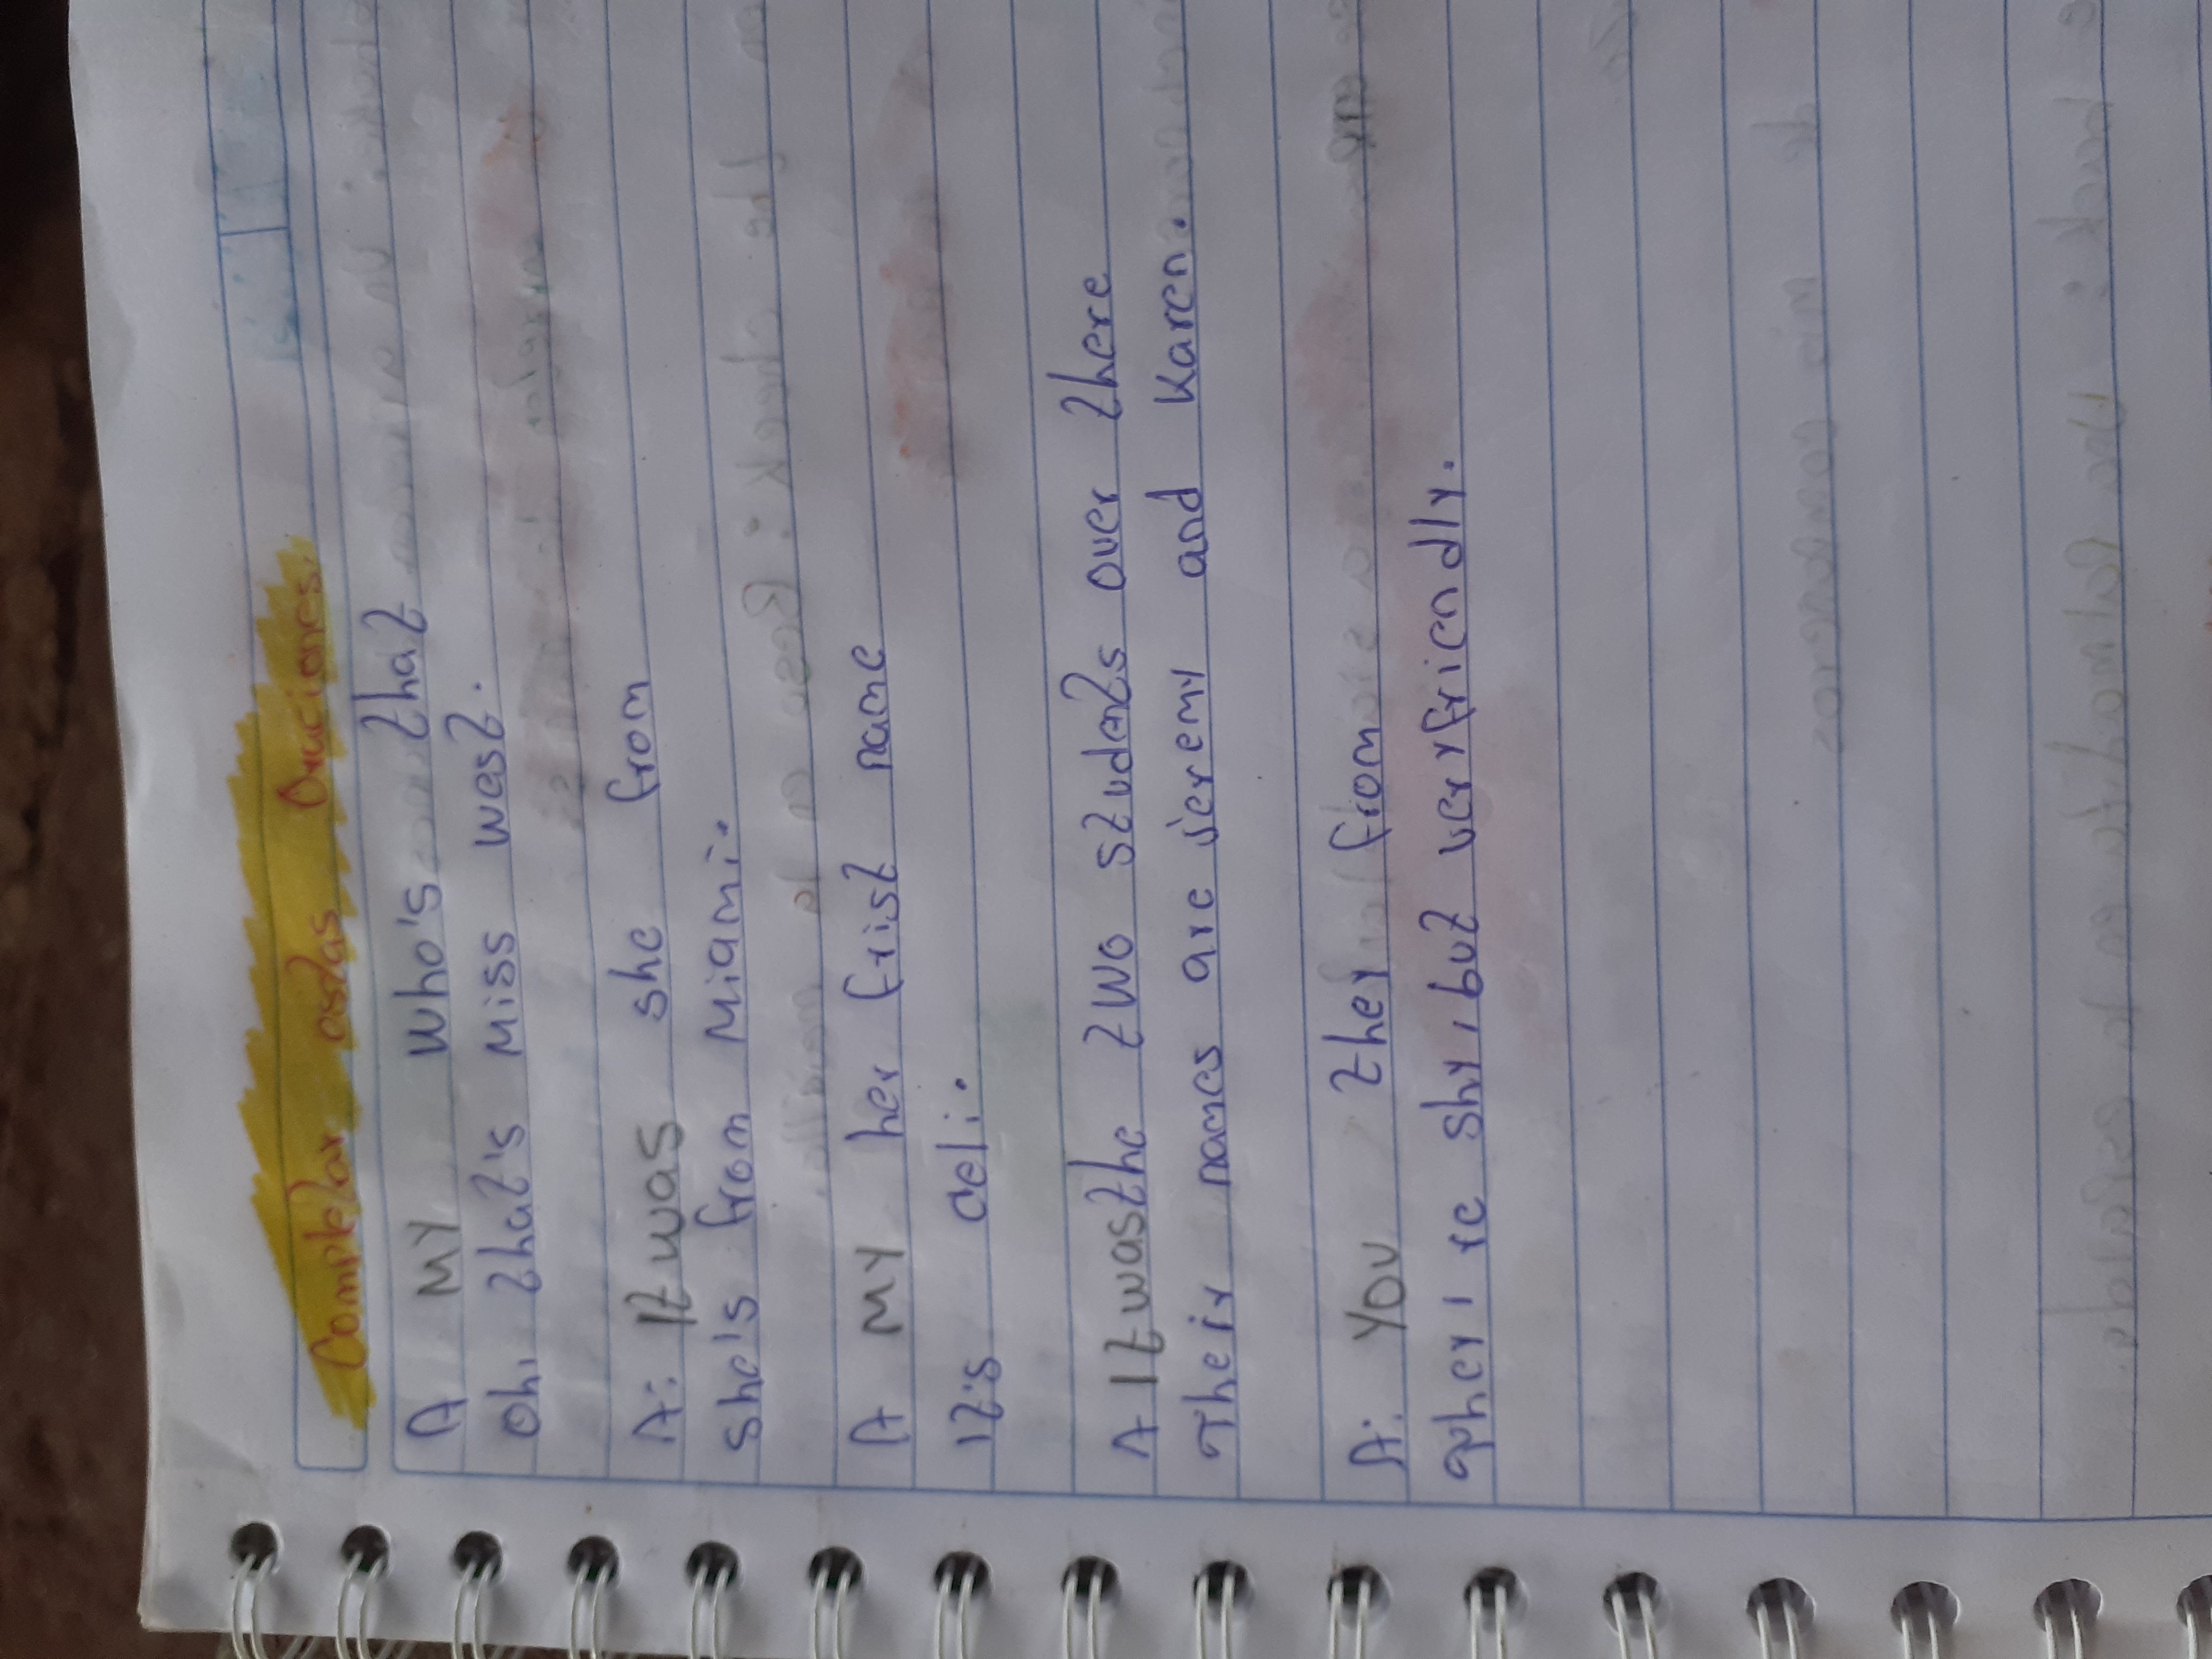 Completar estas Oraciones.
A MY Who's that
Oh, that's Miss West.
A: It was she from
She's from Miami.
A MY her frist name
It's Celi.
A It was the two students over there
Their names are Jeremy and Karen.
A: You they from
They're shy, but veryfriendly.